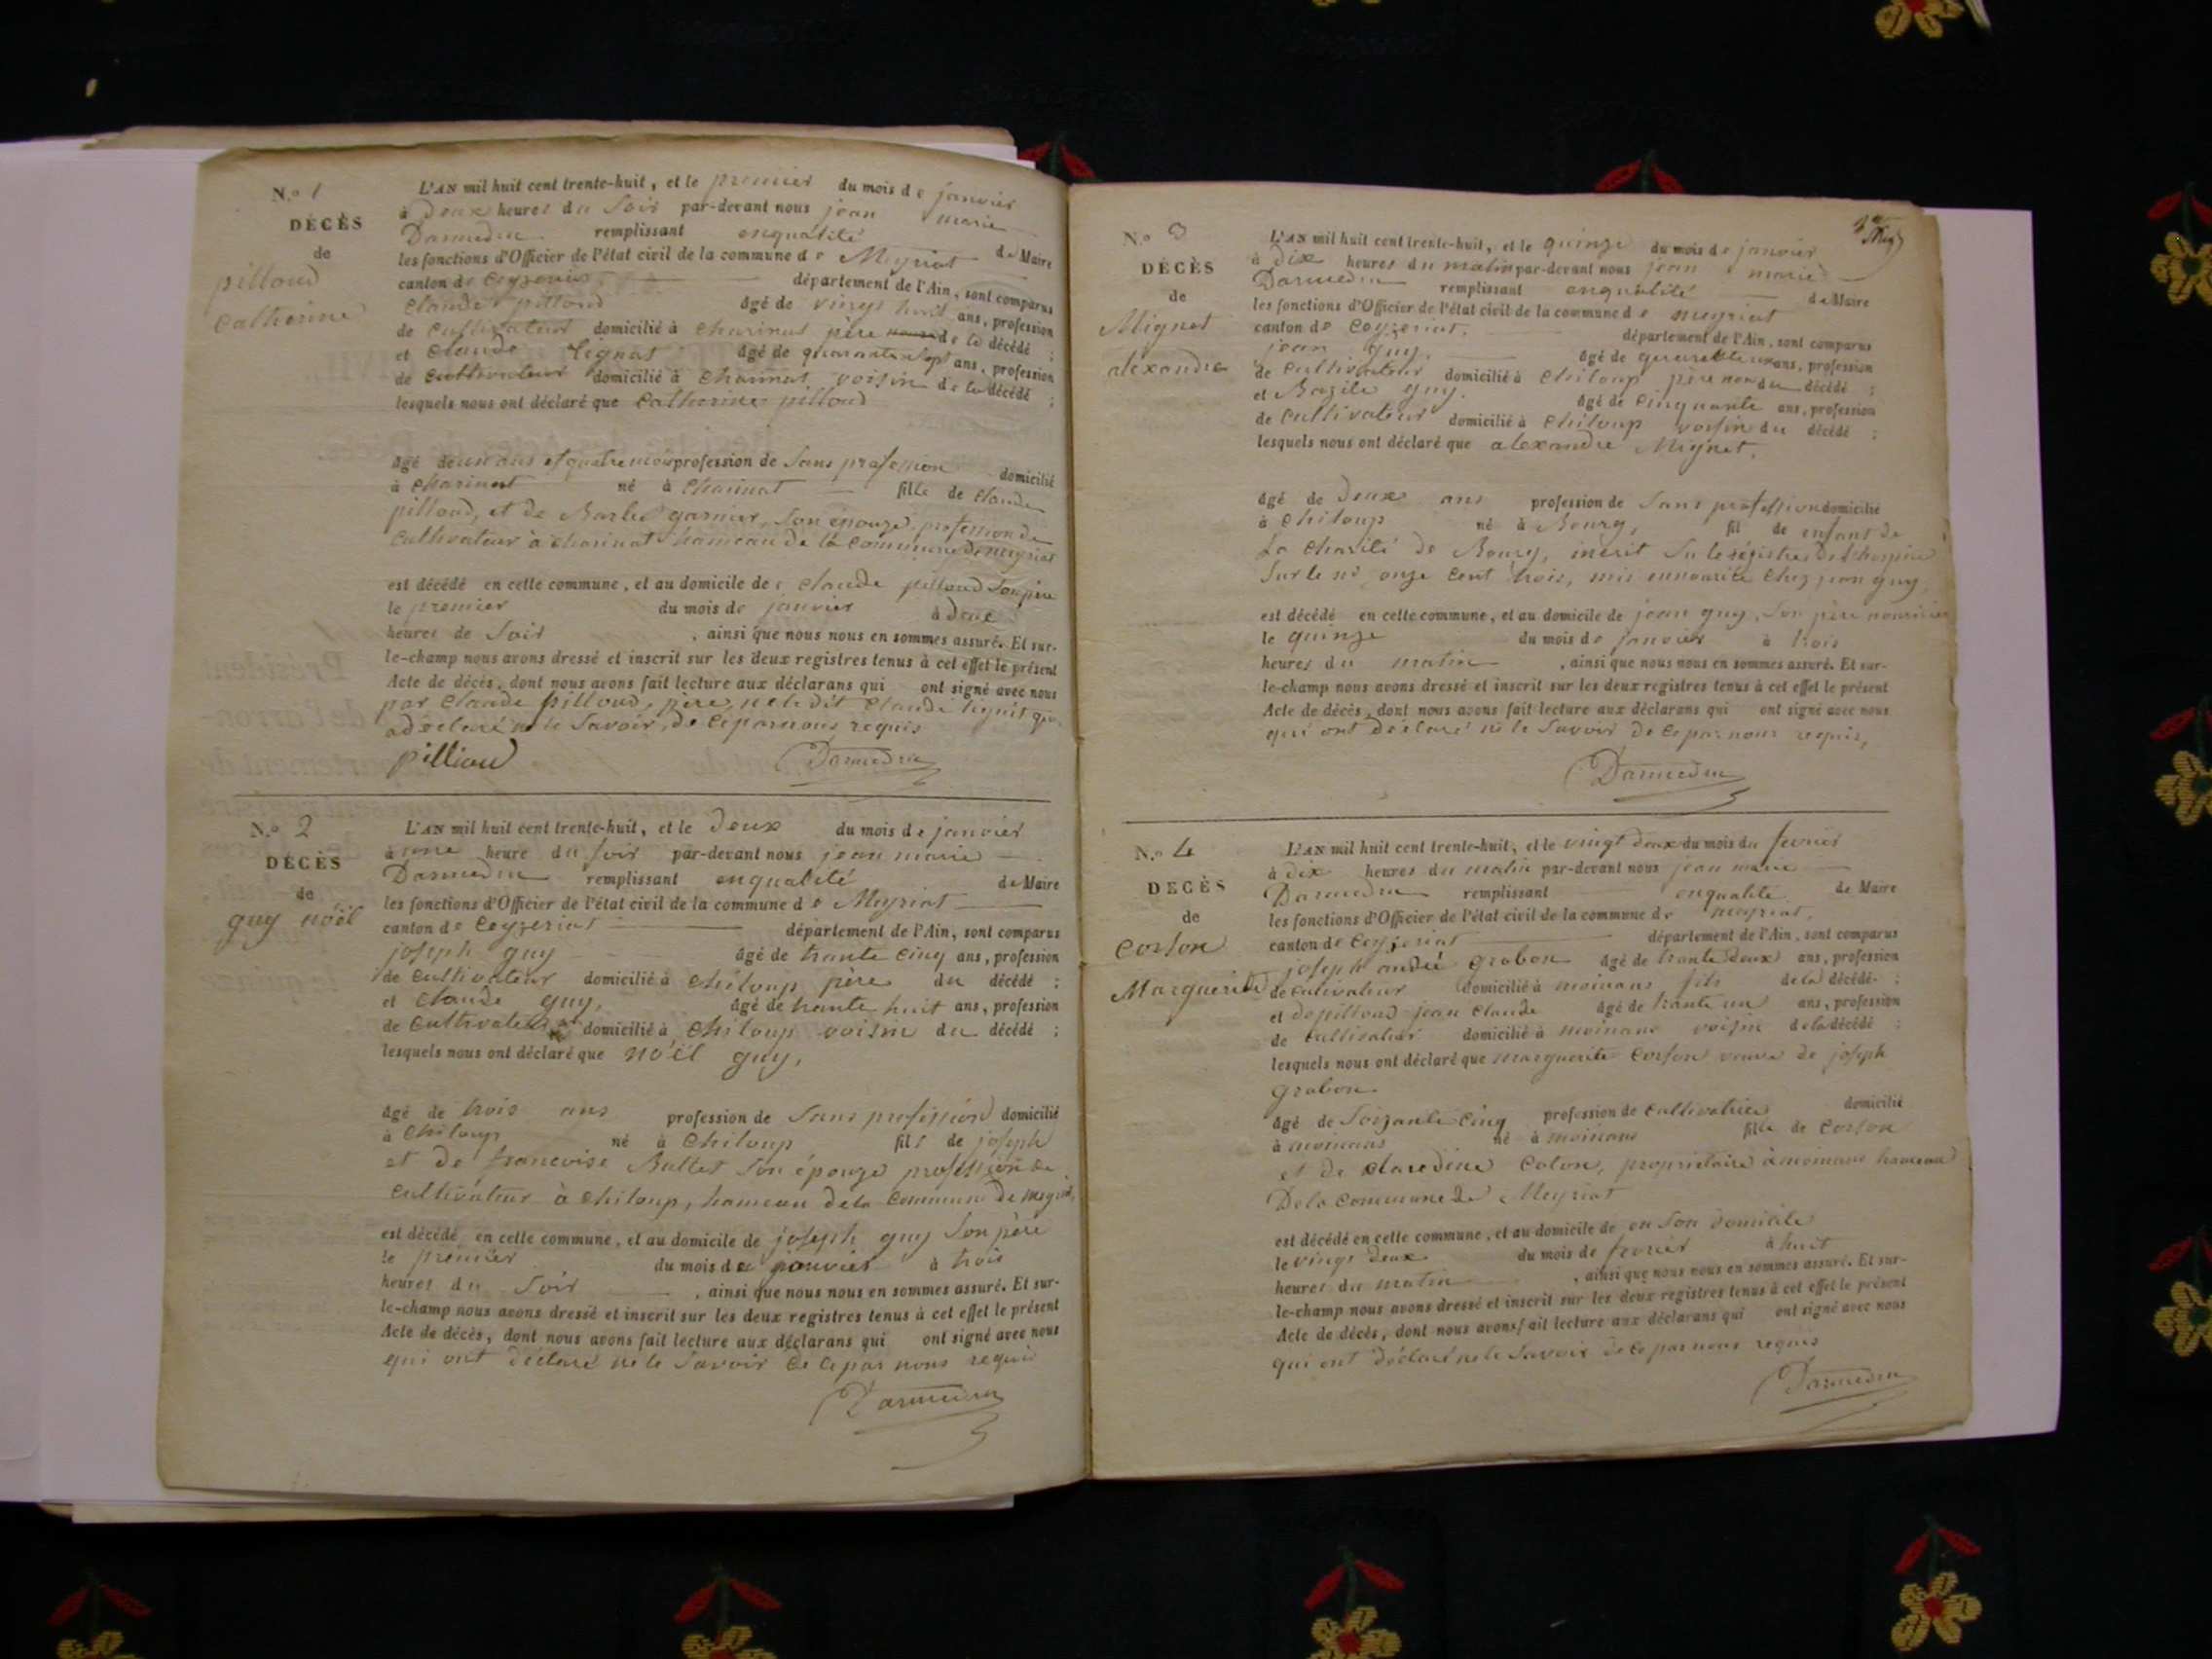 N.o 1
DÉCÈS
de
pilloud
Catherine
L'AN mil huit cent trente-huit, et le premier du mois de janvier
à Deux heures du Soir par-devant nous jean marie
Darmedru remplissant enqualité de Maire
les fonctions d'Officier de l'état civil de la commune de Meyriat
canton de Ceyzeriat département de l'Ain, sont comparus
Claude pilloud âgé de vingt huit ans, profession
de Cultivateur domicilié à Charinat père de la décédé ;
et Claude âgé de quarante sept ans, profession
de Cultivateur domicilié à Charinat voisin de la décédé ;
lesquels nous ont déclaré que Catherine pilloud
âgé de un ans et quatre mois profession de Sans profession domicilié
à Charinat né à Charinat fille de Claude
pilloud, et de garnier, Son épouze, profession de
Cultivateur à Charinat hameau de la Commune de meyriat
est décédé en cette commune, et au domicile de Claude pilloud Son père
le premier du mois de janvier à Deux
heures de Soir , ainsi que nous nous en sommes assuré. Et sur-
le-champ nous avons dressé et inscrit sur les deux registres tenus à cet effet le présent
Acte de décès, dont nous avons fait lecture aux déclarans qui ont signé avec nous
par Claude pilloud, père, Claude
a déclaré ne le Savoir, de Ceparnous requis
pillioud Darmedru
N.o 2
DÉCÈS
de
guy noël
L'AN mil huit cent trente-huit, et le Deux du mois de janvier
à une heure du Soir par-devant nous jean marie
Darmedru remplissant enqualité de Maire
les fonctions d'Officier de l'état civil de la commune de Meyriat
canton de Ceyzeriat département de l'Ain, sont comparus
joseph guy âgé de trante Cinq ans, profession
de Cultivateur domicilié à Chiloup père du décédé ;
et Claude guy, âgé de trante huit ans, profession
de Cultivateur domicilié à Chiloup voisin du décédé ;
lesquels nous ont déclaré que noël guy,
âgé de trois ans profession de Sans profession domicilié
à Chiloup né à Chiloup fils de joseph
et de francoise Buttet Son épouze profession de
Cultivateur à Chiloup, hameau dela Commune de meyriat
est décédé en cette commune, et au domicile de joseph guy Son père
le premier du mois de janvier à trois
heures du Soir , ainsi que nous nous en sommes assuré. Et sur-
le-champ nous avons dressé et inscrit sur les deux registres tenus à cet effet le présent
Acte de décès, dont nous avons fait lecture aux déclarans qui ont signé avec nous
qui ont déclaré ne le Savoir de Cepar nous requis
Darmedru
N.o 3
DÉCÈS
de
Mignet
alexandre
L'AN mil huit cent trente-huit, et le quinze du mois de janvier
à Dix heures du matin par-devant nous jean marie
Darmedru remplissant enqualité de Maire
les fonctions d'Officier de l'état civil de la commune de meyriat
canton de Ceyzeriat. département de l'Ain, sont comparus
jean guy. âgé de ans, profession
de Cultivateur domicilié à Chiloup père du décédé ;
et Bazile guy. âgé de Cinquante ans, profession
de Cultivateur domicilié à Chiloup voisin du décédé ;
lesquels nous ont déclaré que alexandre Mignet.
âgé de Deux ans profession de Sans profession domicilié
à Chiloup né à Bourg, fil de enfant de
La Charité de Bourg, inscrit Sur le régistre
Sur le no onze Cent trois, mis ennourice Chez jean guy
est décédé en cette commune, et au domicile de jean guy, Son père nourricier
le quinze du mois de janvier à trois
heures du matin , ainsi que nous nous en sommes assuré. Et sur-
le-champ nous avons dressé et inscrit sur les deux registres tenus à cet effet le présent
Acte de décès, dont nous avons fait lecture aux déclarans qui ont signé avec nous
qui ont déclaré ne le Savoir de Ceparnous requis,
Darmedru
N.o 4
DÉCÈS
de
Corton
Marguerite
L'AN mil huit cent trente-huit, et le vingt Deux du mois du fevrier
à dix heures du matin par-devant nous jean marie
Darmedru remplissant enqualité de Maire
les fonctions d'Officier de l'état civil de la commune de meyriat,
canton de Ceyzeriat département de l'Ain, sont comparus
joseph andré grabon âgé de trante deux ans, profession
de Cultivateur domicilié à moinans fils de la décédé ;
et depilloud jean Claude âgé de trante un ans, profession
de Cultivateur domicilié à moinans voisin de la décédé ;
lesquels nous ont déclaré que marguerite Corton veuve de joseph
grabon
âgé de Soizante Cinq profession de Cultivatrice domicilié
à moinans né à moinans fille de Corton
et de Claudine Colon, proprietaire à moinans hameau
Dela Commune de Meyriat
est décédé en cette commune, et au domicile de en Son domicile
le vingt Deux du mois de fevrier à huit
heures du matin , ainsi que nous nous en sommes assuré. Et sur-
le-champ nous avons dressé et inscrit sur les deux registres tenus à cet effet le présent
Acte de décès, dont nous avons fait lecture aux déclarans qui ont signé avec nous
qui ont déclaré ne le Savoir de Ce par nous requis
Darmedru